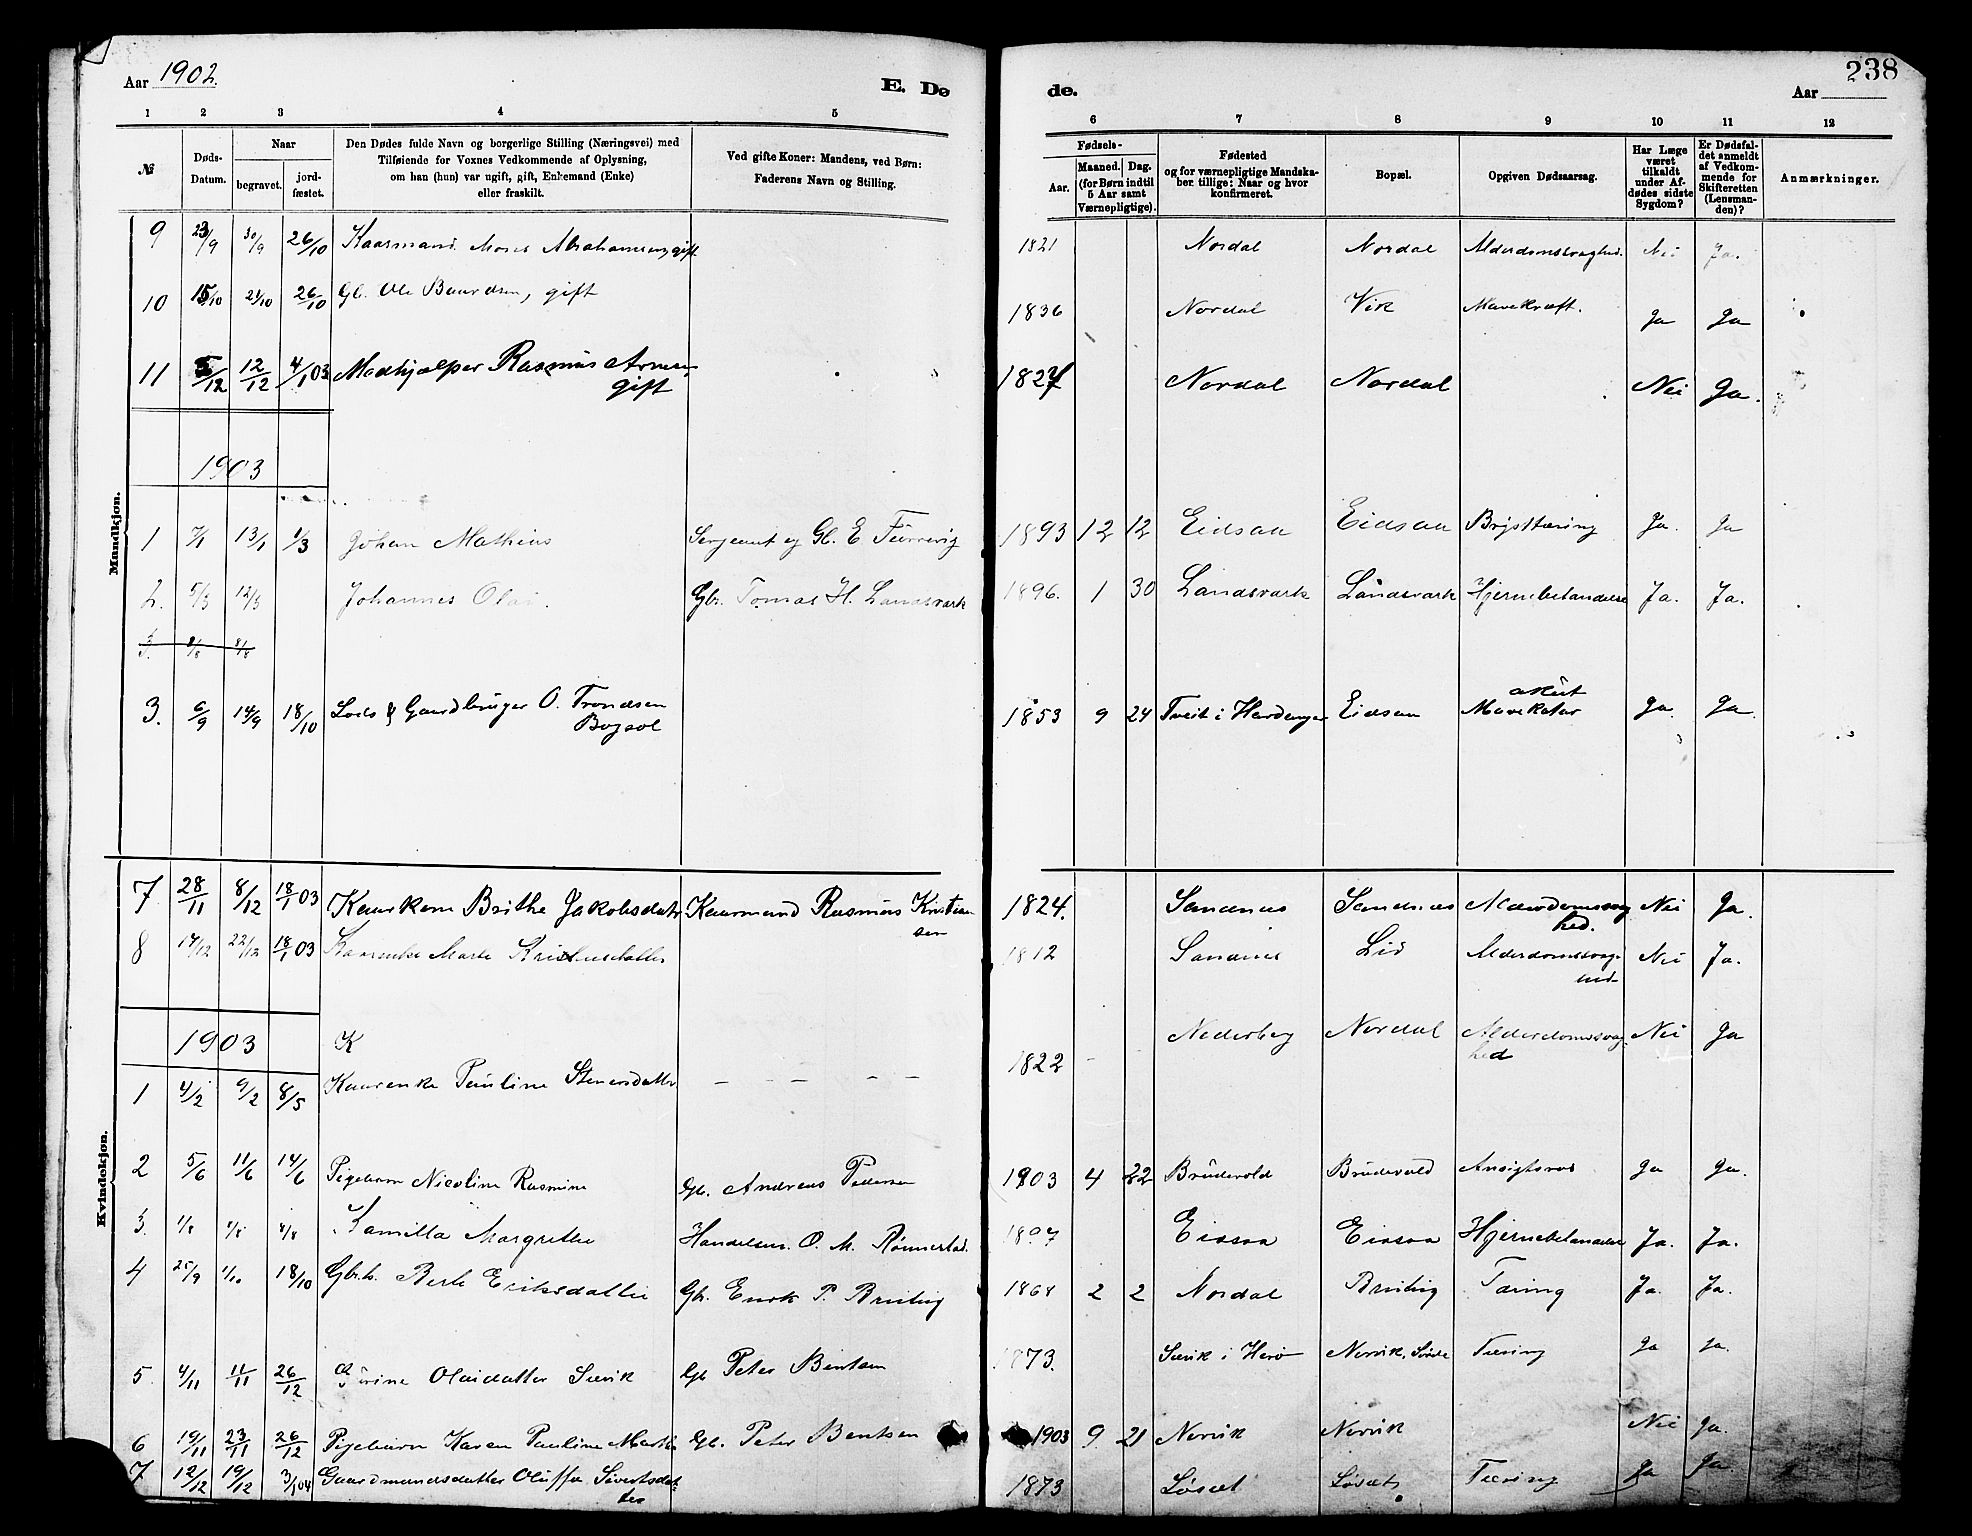 Aar 1902.
E. Dø
de.
238
Aar
1 2 3 4 5 6 7 8 9 10 11 12
№
Døds-
Datum.
Naar
begravet.
jord-
fæstet.
Den Dødes fulde Navn og borgerlige Stilling (Næringsvei) med
Tilføiende for Voxnes Vedkommende af Oplysning,
om han (hun) var ugift, gift, Enkemand (Enke)
eller fraskilt.
Ved gifte Koner: Mandens, ved Børn:
Faderens Navn og Stilling.
Fødsels-
Aar.
Maaned. Dag.
(for Børn indtil
5 Aar samt
Værnepligtige).
Fødested
og for værnepligtige Mandska-
ber tillige: Naar og hvor
konfirmeret.
Bopæl.
Opgiven Dødsaarsag.
Har Læge
været
tilkaldt
under Af-
dødes sidste
Sygdom?
Er Dødsfal-
det anmeldt
af Vedkom-
mende for
Skifteretten
(Lensman-
den)?
Anmærkninger.
Mandkjøn.
9 23/9 30/9 26/10 Kaarmand. Moses Abrahamsen, gift. 1821 Nordal Nordal Alderdomssvaghed. Nei Ja.
10 15/10 24/10 26/10 Gb. Ole Baardsen, gift 1836 Nordal Vik Mavekræft. Ja Ja
11 5/12 12/12 4/1 03 Medhjælper Rasmus Arnesen gift 1827 Nordal Nordal Nei Ja.
1903
1 7/1 13/1 1/3 Johan Mathias Sergeant og Gb. E. 1893 12 12 Eidsaa Eidsaa Brysttæring Ja. Ja
2. 5/3 12/3 Johannes Olai. Gbr. Tomas H. Landsvark 1896. 1 30 Landsvark Landsvark Hjernebetændelse Ja. Ja.
3. 8/8
3. 6/9 14/9 18/10 Lods & Gaardbruger O. Trondsen 1853 9 24 Tveit i Hardanger Eidsaa akut Mavekatar Ja. Ja.
Kvindekjøn.
7 28/11 8/12 18/1 03 Kaarkone Brithe Jakobsdatr Kaarmand Rasmus Kristian
sen 1824. Sandnes Sandnes Alderdomssvag
hed. Nei Ja.
8 14/12 22/12 18/1 03 Kaarenke Marte 1812 Sandnes Lid Alderdomssvag-
hed Nei Ja.
1903 K
1 4/2 9/2 8/5 Kaarenke Pauline Steneesdatter – – – – – 1822 – Nederberg Nordal Alderdomssvag-
hed Nei Ja
2 5/6 11/6 14/6 Pigebarn Nicoline Rasmine Gb. Andreas Pedersen 1903 4 22 Brudevold Brudevold Ansigtsros Ja Ja.
3. 1/8 8/8 Kamilla Margrethe Handelsm. O. M. Rønnestad. 1897 Eidsaa Eidsaa Hjernebetændelse Ja. Ja.
4 25/9 1/10 18/10 Gbr.k. Berte Eriksdatter Gb. P. 1868 2 2 Nordal Tæring Ja. Ja.
5. 4/11 11/11 26/12 Olaidatter Sævik Gb Peter Bentsen 1873. Sævik i Herø Nervik, Tæring Ja Ja.
6 19/11 23/11 26/12 Pigebarn Karen Pauline Gb. Peter Bentsen 1903 9. 21 Nervik Nervik Nei Ja.
7 12/12 19/12 3/1 04 Gaardmandsdatter Oluffa Sivertsdat-
ter 1873 Løset Løset Tæring Ja Ja.